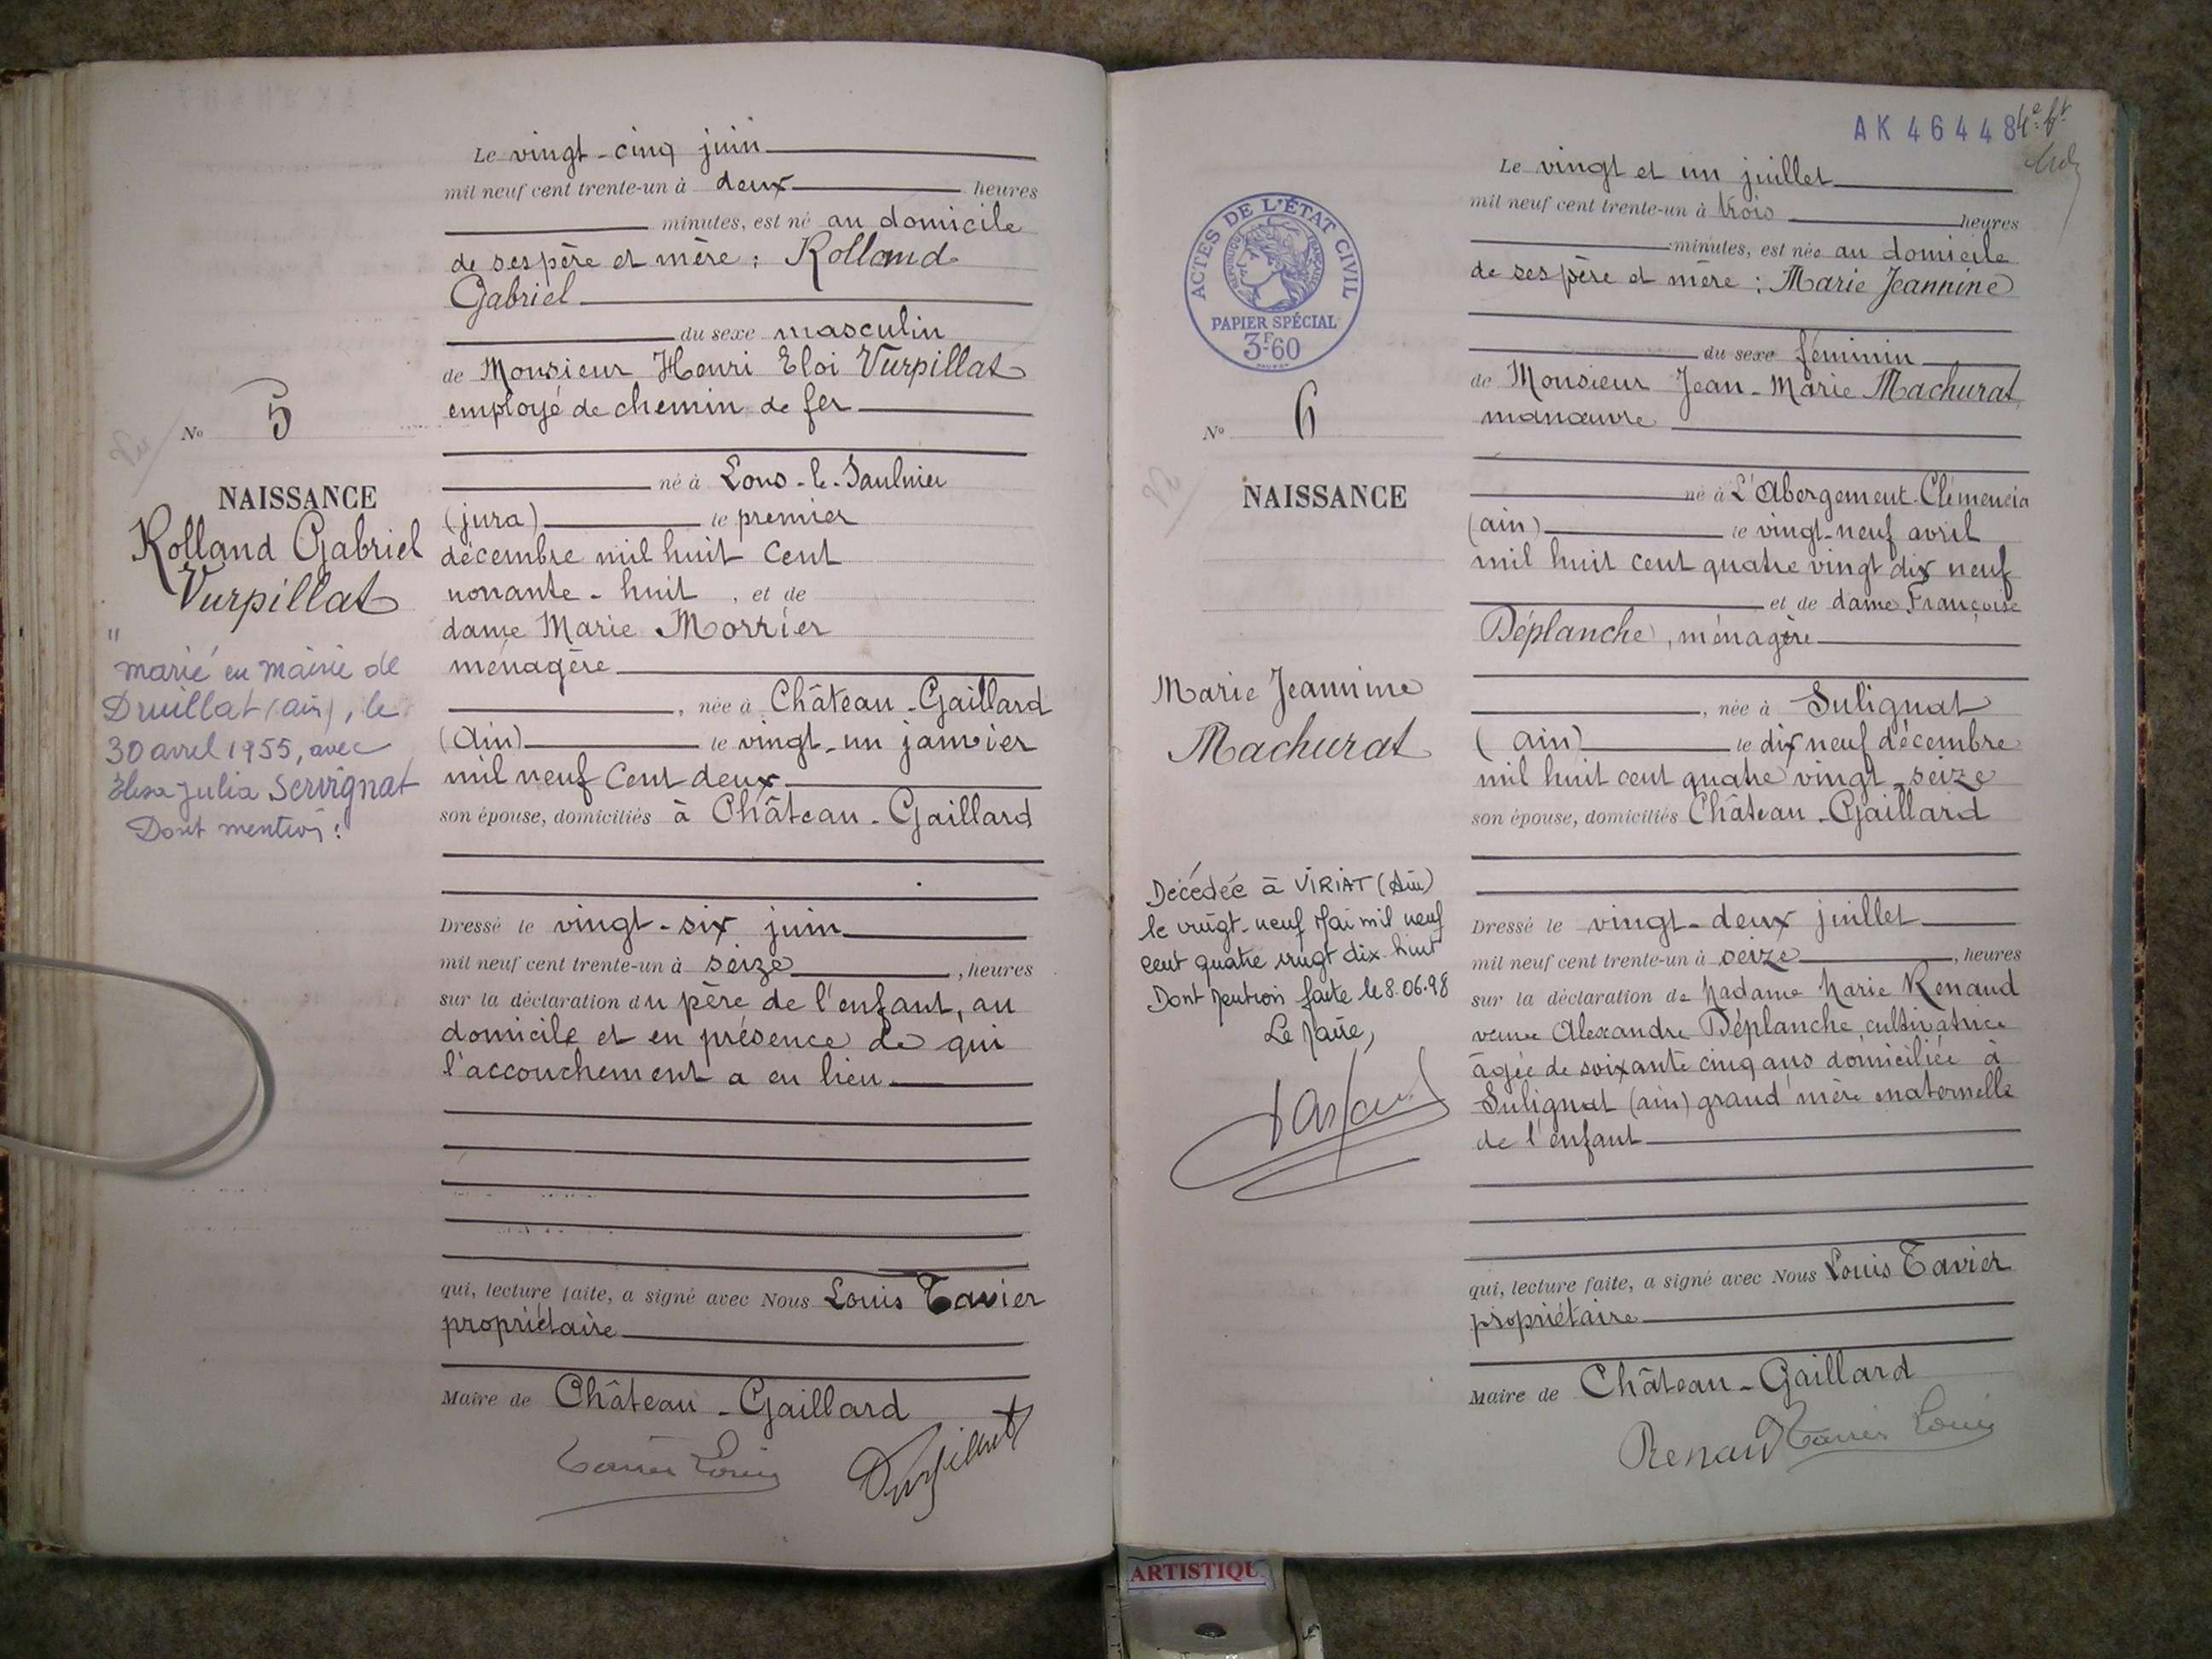 Le vingt-cinq juin
mil neuf cent trente-un à deux heures
minutes, est né au domicile
de ses père et mère : Rolland
Gabriel
du sexe masculin
de Monsieur Henri Eloi Vurpillat
employé de chemin de fer
né à Lons-le-Saulnier
(jura) le premier
décembre mil huit cent
nonante-huit, et de
dame Marie Morrier
ménagère
, née à Château-Gaillard
(Ain) le vingt-un janvier
mil neuf cent deux
son épouse, domiciliés à Château-Gaillard
Dressé le vingt-six juin
mil neuf cent trente-un à seize, heures
sur la déclaration du père de l'enfant, au
domicile et en présence de qui
l'accouchement a eu lieu
qui, lecture faite, a signé avec Nous Louis Tavier
propriétaire
Maire de Château-Gaillard
Tavier Louis Vurpillat
No 5
NAISSANCE
Rolland Gabriel
Vurpillat
"
marié en mairie de
Druillat (ain), le
30 avril 1955, avec
Elisa Julia Servignat
Dont mention :
AK 46448
Le vingt et un juillet
mil neuf cent trente-un à trois heures
minutes, est née au domicile
de ses père et mère : Marie Jeannine
du sexe féminin
de Monsieur Jean-Marie Machurat
manœuvre
né à L'Abergement-Clémencia
(ain) le vingt-neuf avril
mil huit cent quatre vingt dix neuf
et de dame Françoise
Déplanche, ménagère
, née à Sulignat
(ain) le dix neuf décembre
mil huit cent quatre vingt-seize
son épouse, domiciliés Château-Gaillard
Dressé le vingt-deux juillet
mil neuf cent trente-un à seize, heures
sur la déclaration de Madame Marie Renaud
veuve Alexandre Déplanche cultivatrice
âgée de soixante cinq ans domiciliée à
Sulignat (ain) grand'mère maternelle
de l'enfant
qui, lecture faite, a signé avec Nous Louis Tavier
propriétaire
Maire de Château-Gaillard
Renaud Tavier Louis
ACTES DE L'ÉTAT CIVIL
RÉPUBLIQUE FRANÇAISE
PAPIER SPÉCIAL
3F60
No 6
NAISSANCE
Marie Jeannine
Machurat
Décédée à VIRIAT (Ain)
le vingt-neuf Mai mil neuf
cent quatre vingt dix-huit
Dont Mention faite le 8.06.98
Le Maire,
ARTISTIQU